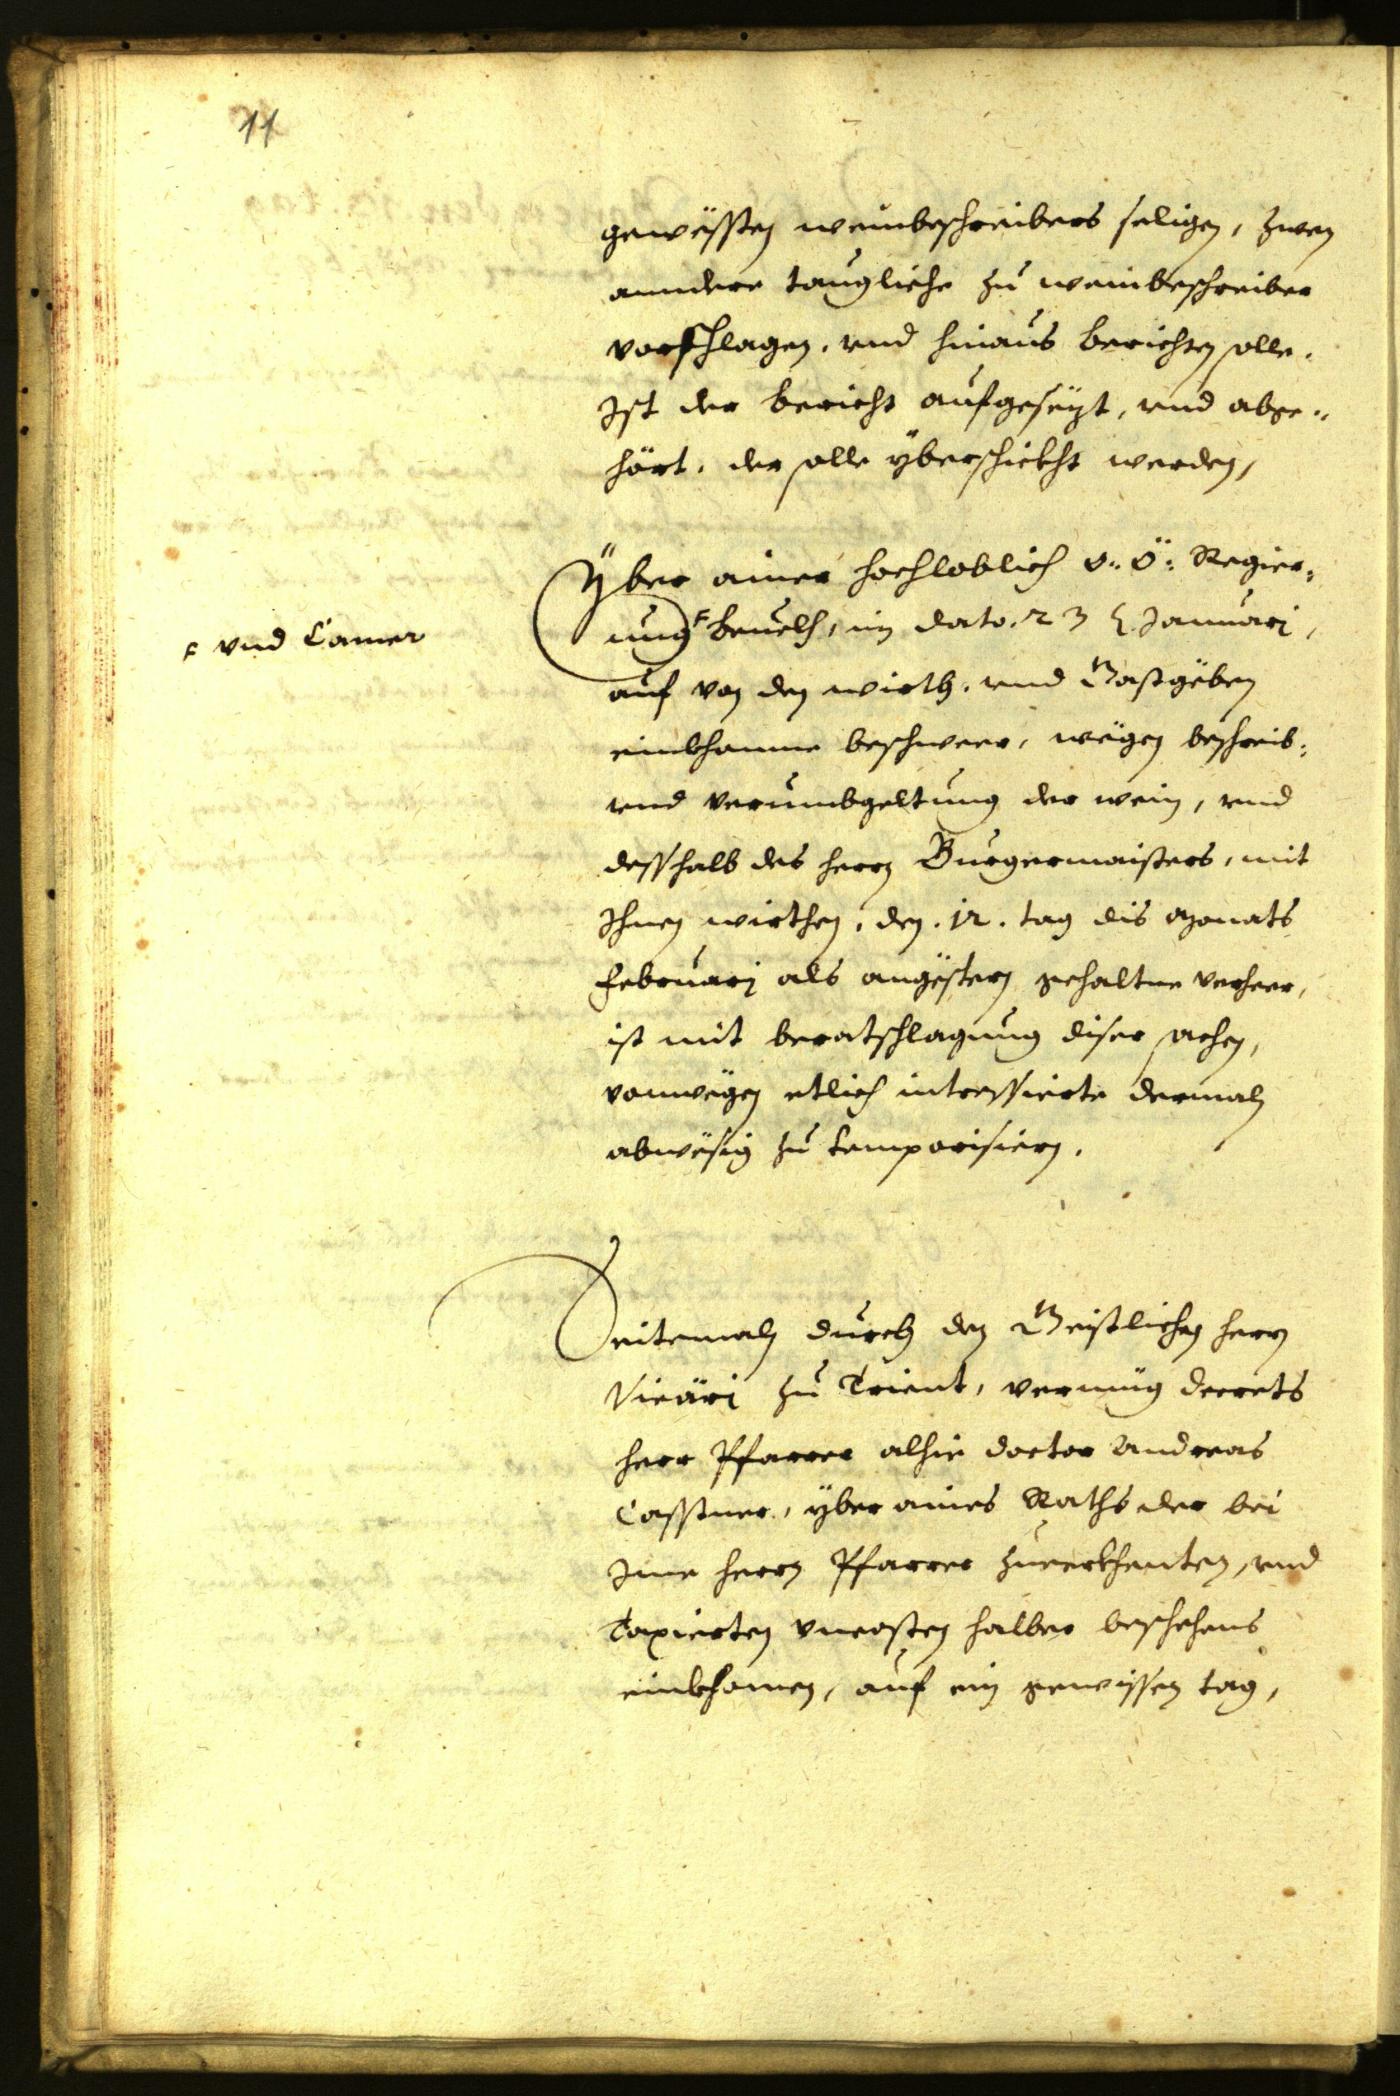 11
gewesten weinbeschreibers seligen, zwen
anndere taugliche zu weinbeschreiber
vorschlagen, vnd hinaus berichten solle.
Ist der bericht aufgesezt, vnd abge„
hört, der solle ÿberschickht werden,
Ÿber ainer hochloblich o: ö: Regier„
ung beuelch, im dato 23 Januarj,
F vnd Camer
auf von den wirth. vnd Gastgeben
einkhomne beschwer, wegen beschreib„
vnd verumbgeltung der wein, vnd
desshalb des herrn Burgermaisters, mit
Ihnen wirthen, den .12. tag dis Monats
Februarj als angestern gehaltne verheer,
ist mit beratschlagung diser sachen,
vonwegen etlich intressierte dermaln
abwesig zu temporisiern.
Seitemaln durch den Geistlichen herrn
Vicäri zu Trient, vermüg decrets
herr Pfarrer alhie doctor Andreas
Casstner, ÿber aines Raths der bei
Ime herrn Pfarrer zuerkhenten, vnd
Taxierten vncosten halber beschehens
einkhomen, auf ein gewissen tag,